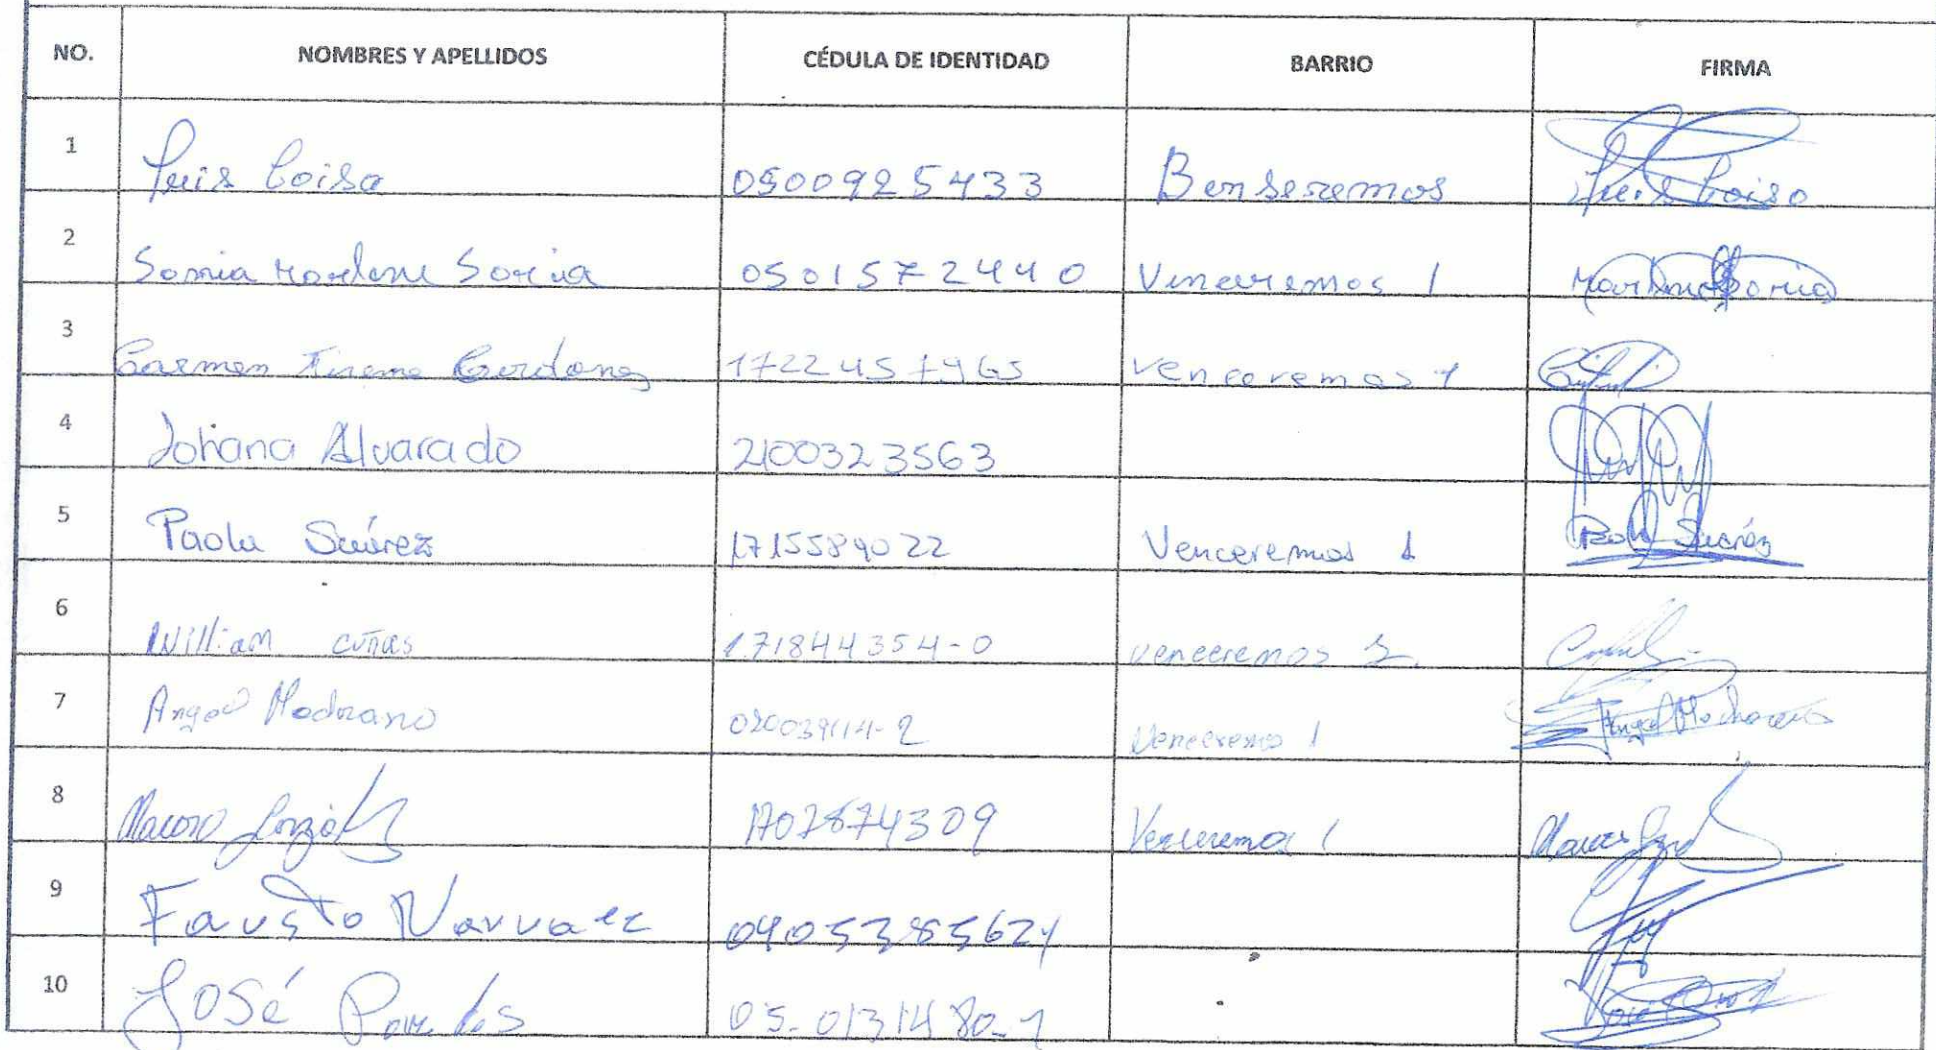 NO. NOMBRES Y APELLIDOS CÉDULA DE IDENTIDAD BARRIO FIRMA
1 Luis Loisa 0500925433 Benseremos Luis Loiso
2 Sonia Marlene Soria 0501572440 Venceremos 1 Marlene Soria
3 Carmen 1722457965 Venceremos 1
4 Johana Alvarado 2100323563
5 Paola Suárez 1715589022 Venceremos 1 Paola Suárez
6 William cuñas 171844354-0 venceremos 2
7 Angel Medrano Venceremos 1 Angel Medrano
8 Mauro González 1702874309 Venceremos 1
9 Fausto Narvaez
10 José Paredes José